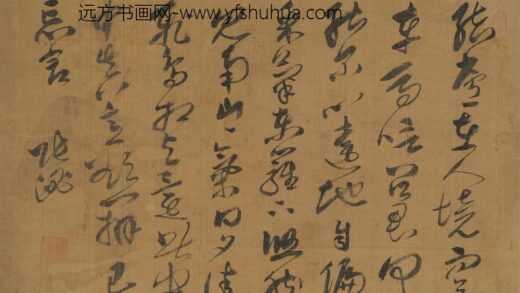 远方书画网-www.yfshuhua.com
結廬在人境而
車馬喧問君何
能爾心遠地自偏
采菊東籬下悠然
見南山々氣日夕佳
飛鳥相與還此中
有真意欲辨已
忘言